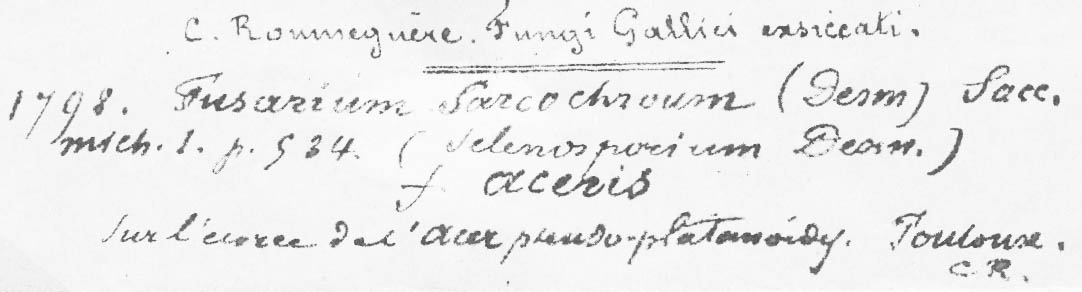 C. Roumeguère. Fungi Gallici exsiccati.
1798. Fusarium Sarcochroum (Desm) Sacc.
mich. 1. p. 534. (Selenosporium Desm.)
f. aceris
Sur l'écorce de l'Acer pseudo-platanoïdes. Toulouse.
C.R.